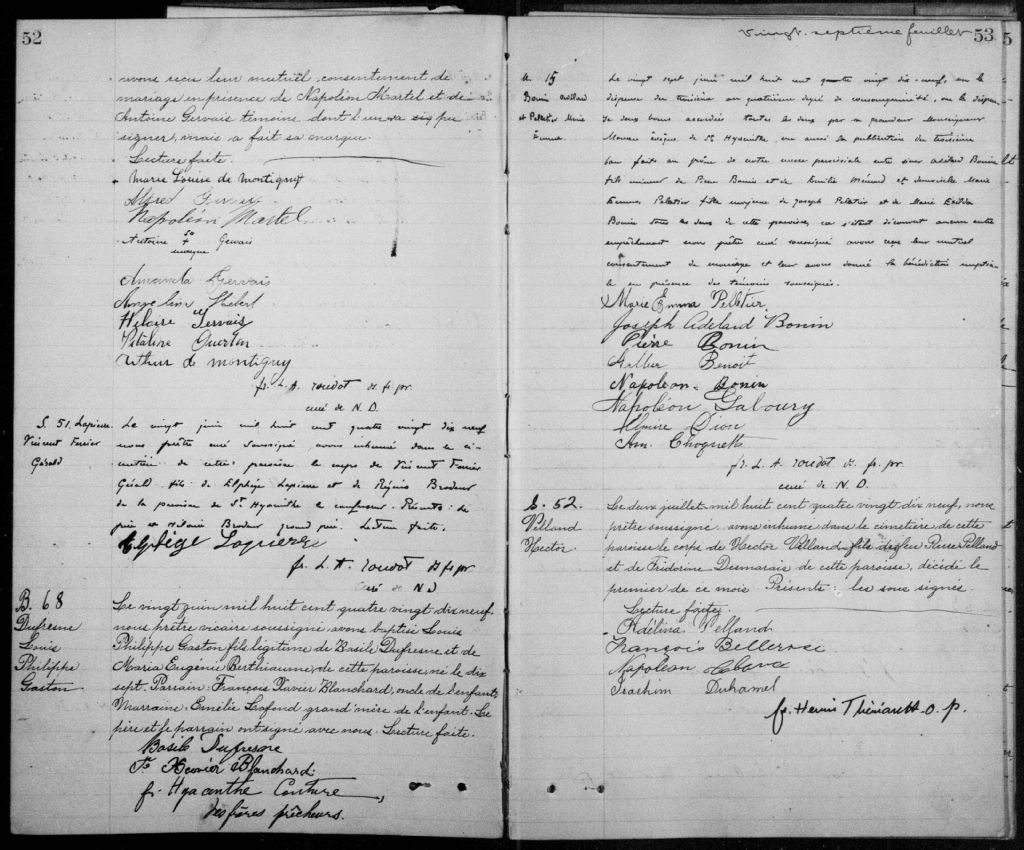 52
avons reçu leur mutuel consentement de
mariage en présence de Napoléon Martel et de
Antoine Gervais témoins dont l'un a signé
signer, mais a fait sa marque.
Lecture faite.
Marie Louise de Montigny
Napoléon Martel
Antoine sa + Gervais
marque
Amanda Gervais
Angelina Hebert
Hilaire Gervais
Vitaline Guertin
Arthur de montigny
fr. L. A. Roudot des fr. pr.
curé de N. D.
S. 51. Lapierre
Vincent Ferrier
Gérald
Le vingt juin mil huit cent quatre vingt dix neuf
nous prêtre curé soussigné avons inhumé dans le ci-
metière de cette paroisse le corps de Vincent Ferrier
Gérald fils de Elphège Lapierre et de Régina Brodeur
de la paroisse de St. Hyacinthe le confesseur. Présents: le
père et Brodeur grand père. Lecture faite.
Elphège Lapierre
fr. L. A. Roudot des fr. pr.
curé de N D
B. 68
Dufresne
Louis
Philippe
Gaston
Le vingt juin mil huit cent quatre vingt dix neuf
nous prêtre vicaire soussigné avons baptisé Louis
Philippe Gaston fils légitime de Basile Dufresne et de
Maria Eugénie Berthiaume, de cette paroisse, né le dix
sept. Parrain: François Xavier Blanchard, oncle de l'enfant
Marraine: Emélie Lafond grand'mère de l'enfant. Le
père et le parrain ont signé avec nous. Lecture faite.
Basile Dufresne
Xavier Blanchard
fr. Hyacinthe Couture,
des frères prêcheurs.
Vingt-septième feuillet 53
M. 15
Bonin Adélard
et Pelletier Marie
Emma
Le vingt sept juin mil huit cent quatre vingt dix-neuf, vu la
dispense du troisième au quatrième degré de consanguinité, vu la dispen-
se de deux bans accordées toutes les deux par sa grandeur Monseigneur
Moreau évêque de St Hyacinthe, vu aussi la publication du troisième
ban faite au prône de notre messe paroissiale entre sieur Adélard Bonin
fils mineur de Pierre Bonin et de Emélie Ménard et demoiselle Marie
Emma Pelletier fille mineure de Joseph Pelletier et de Marie
Bonin tous les deux de cette paroisse, ne s'étant découvert aucun autre
empêchement nous prêtre curé soussigné avons reçu leur mutuel
consentement de mariage et leur avons donné la bénédiction nuptia-
le en présence des témoins soussignés.
Marie Emma Pelletier
Joseph Adélard Bonin
Pierre Bonin
Arthur Benoit
Napoléon Bonin
Napoléon Galoury
Elmire Dion
Am. Choquette
fr. L. A. Roudot des fr. pr.
curé de N. D.
S. 52
Pelland
Hector
Le deux juillet mil huit cent quatre vingt dix neuf, nous
prêtre soussigné avons inhumé dans le cimetière de cette
paroisse le corps de Hector Pelland fils de feu Pierre Pelland
et de Fridorine Desmarais de cette paroisse, décédé le
premier de ce mois. Présents: les sous signés.
Lecture faite
Adélina Pelland
François Bellerose
Napoleon
Joachim Duhamel